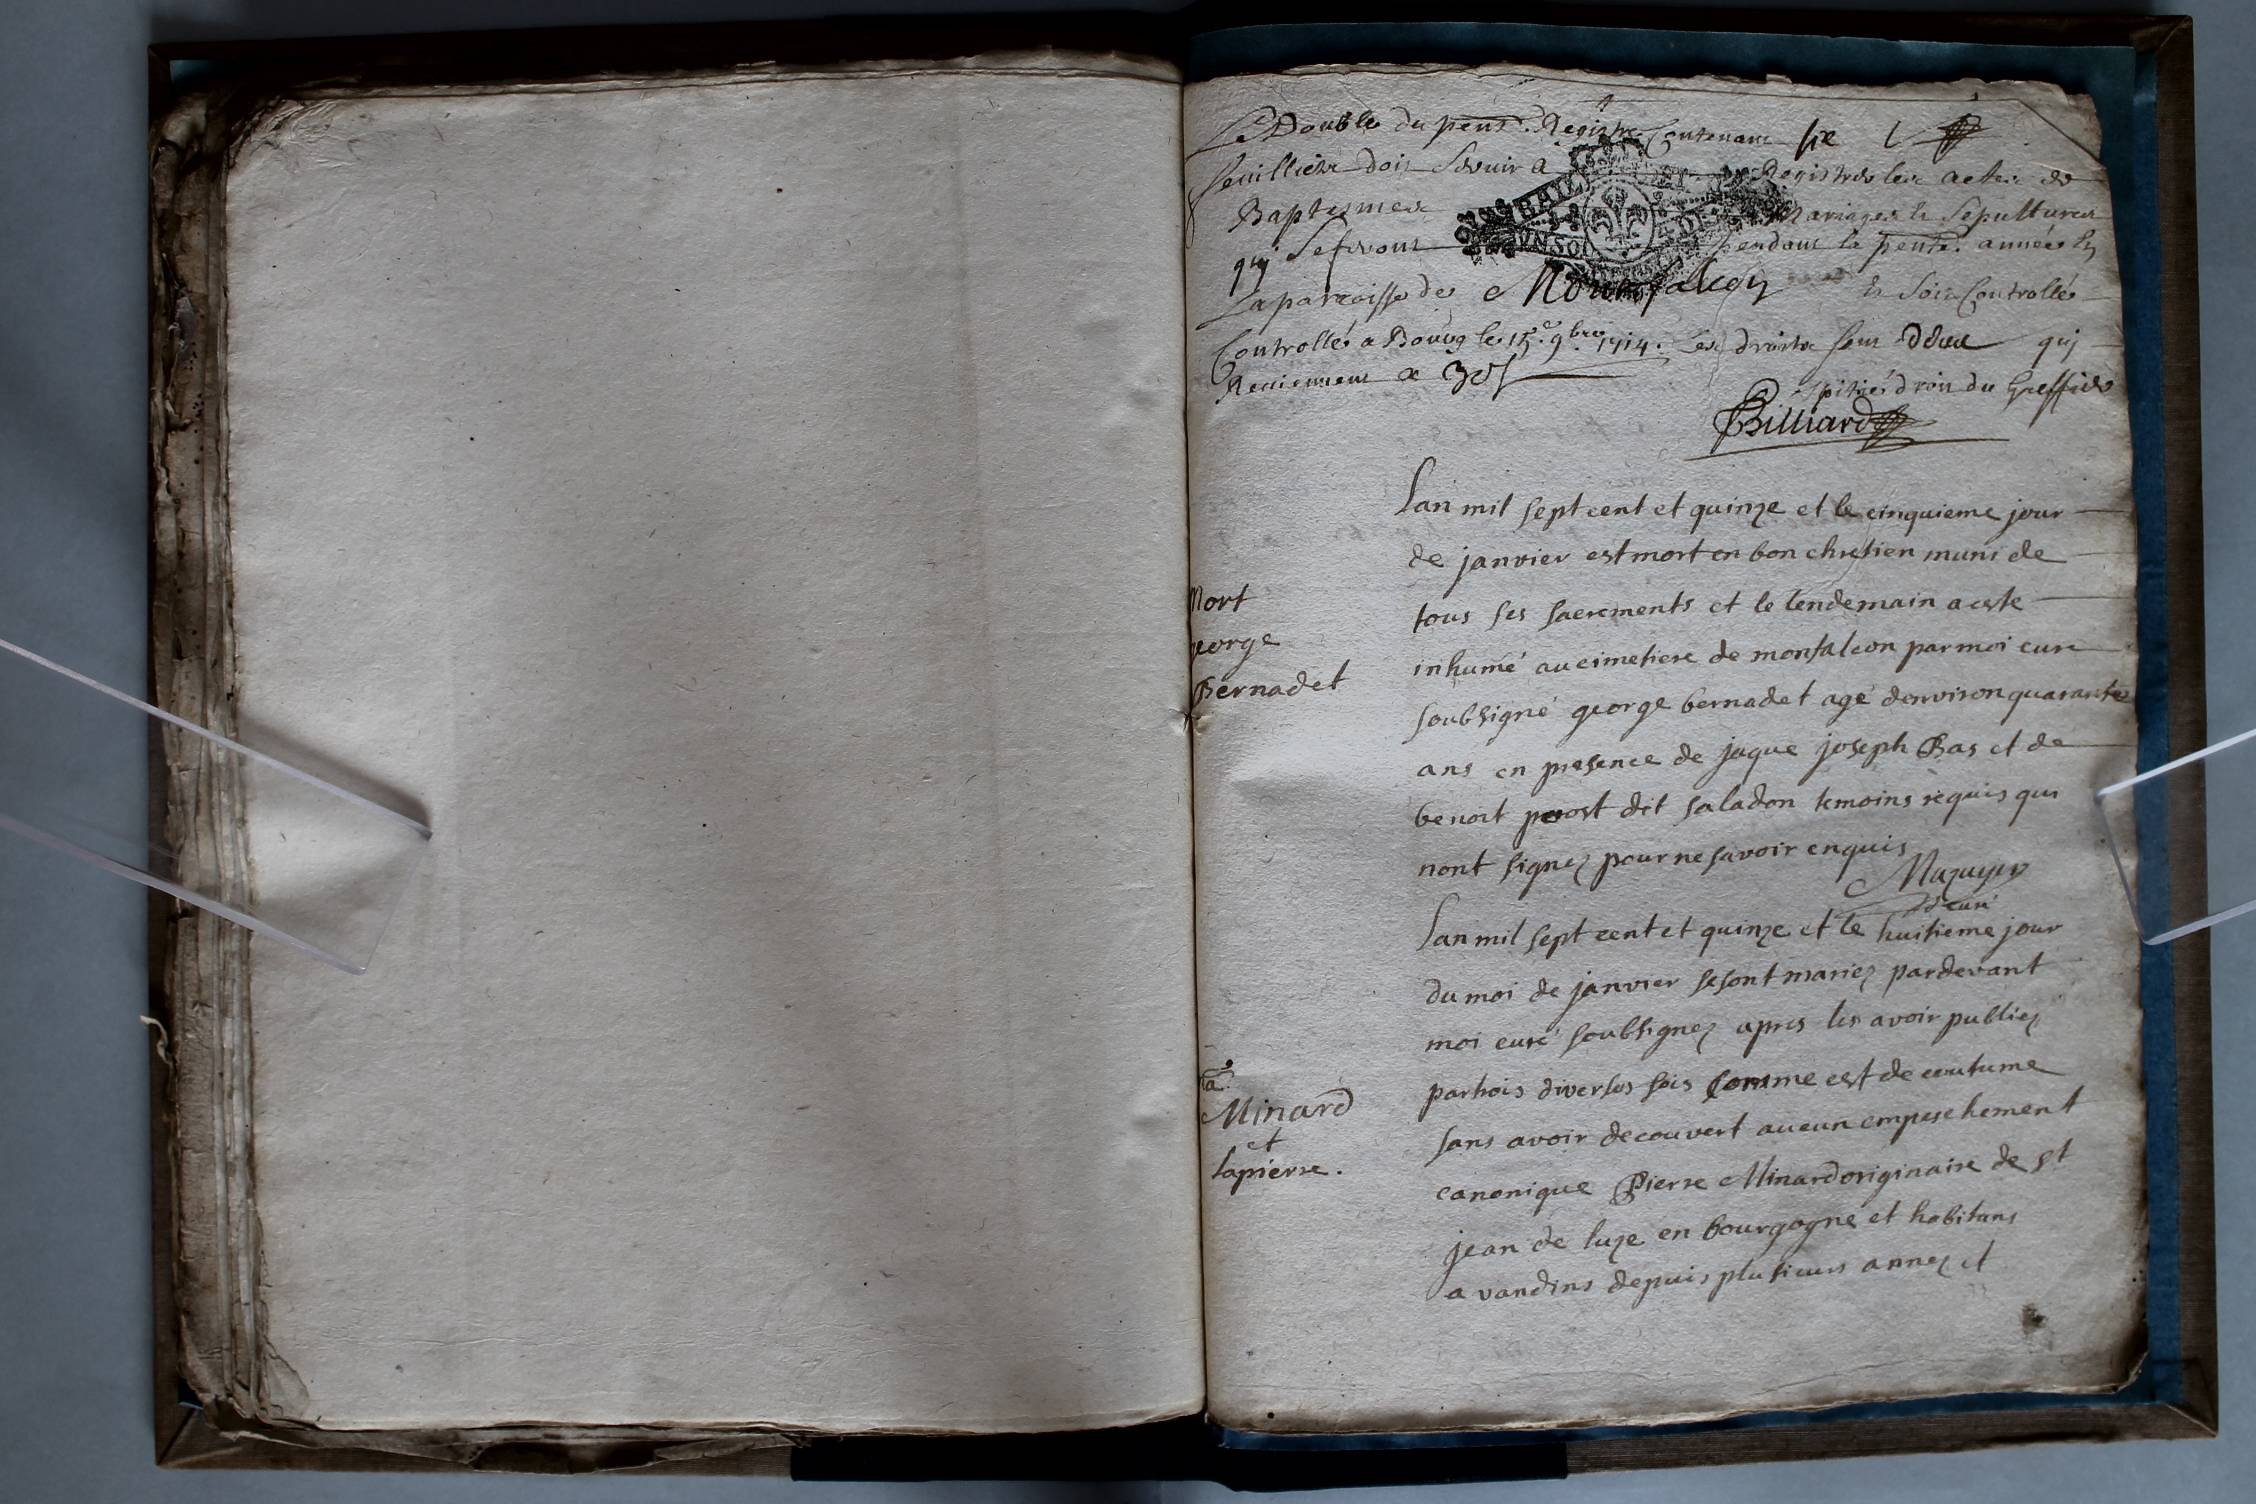 Le Double du pent. Registre Contenant six
feuillietz doit Servir a Registrer les actes de
Baptesmes Mariages et Sepultures
qui Seferont pendant la pente. année En
La paroisse de Montfalcon et Soit Controllé
Controllé a Bourg le 15e. 9bre. 1714. les droits sont deux qui
Reviennent a 30s
pitié droit du Greffier
Billiard
Lan mil sept cent et quinze et le cinquieme jour
de janvier est mort en bon chretien muni de
tous ses sacrements et le lendemain a este
inhumé au cimetiere de monfalcon par moi cure
soubsigné george bernadet agé denviron quarante
ans en presence de jaque joseph Bas et de
benoit prost dit saladon temoins requis qui
nont signez pour ne savoir enquis
Mazuyer
curé
Mort
george
Bernadet
Lan mil sept cent et quinze et le huitieme jour
du moi de janvier se sont mariez pardevant
moi curé soubsignez apres les avoir publiez
par trois diverses fois comme est de coutume
sans avoir decouvert aucun empeschement
canonique Pierre Minard originaire de st
jean de luze en bourgogne et habitans
a vandins depuis plusieurs annez et
Minard
et
lapierre.